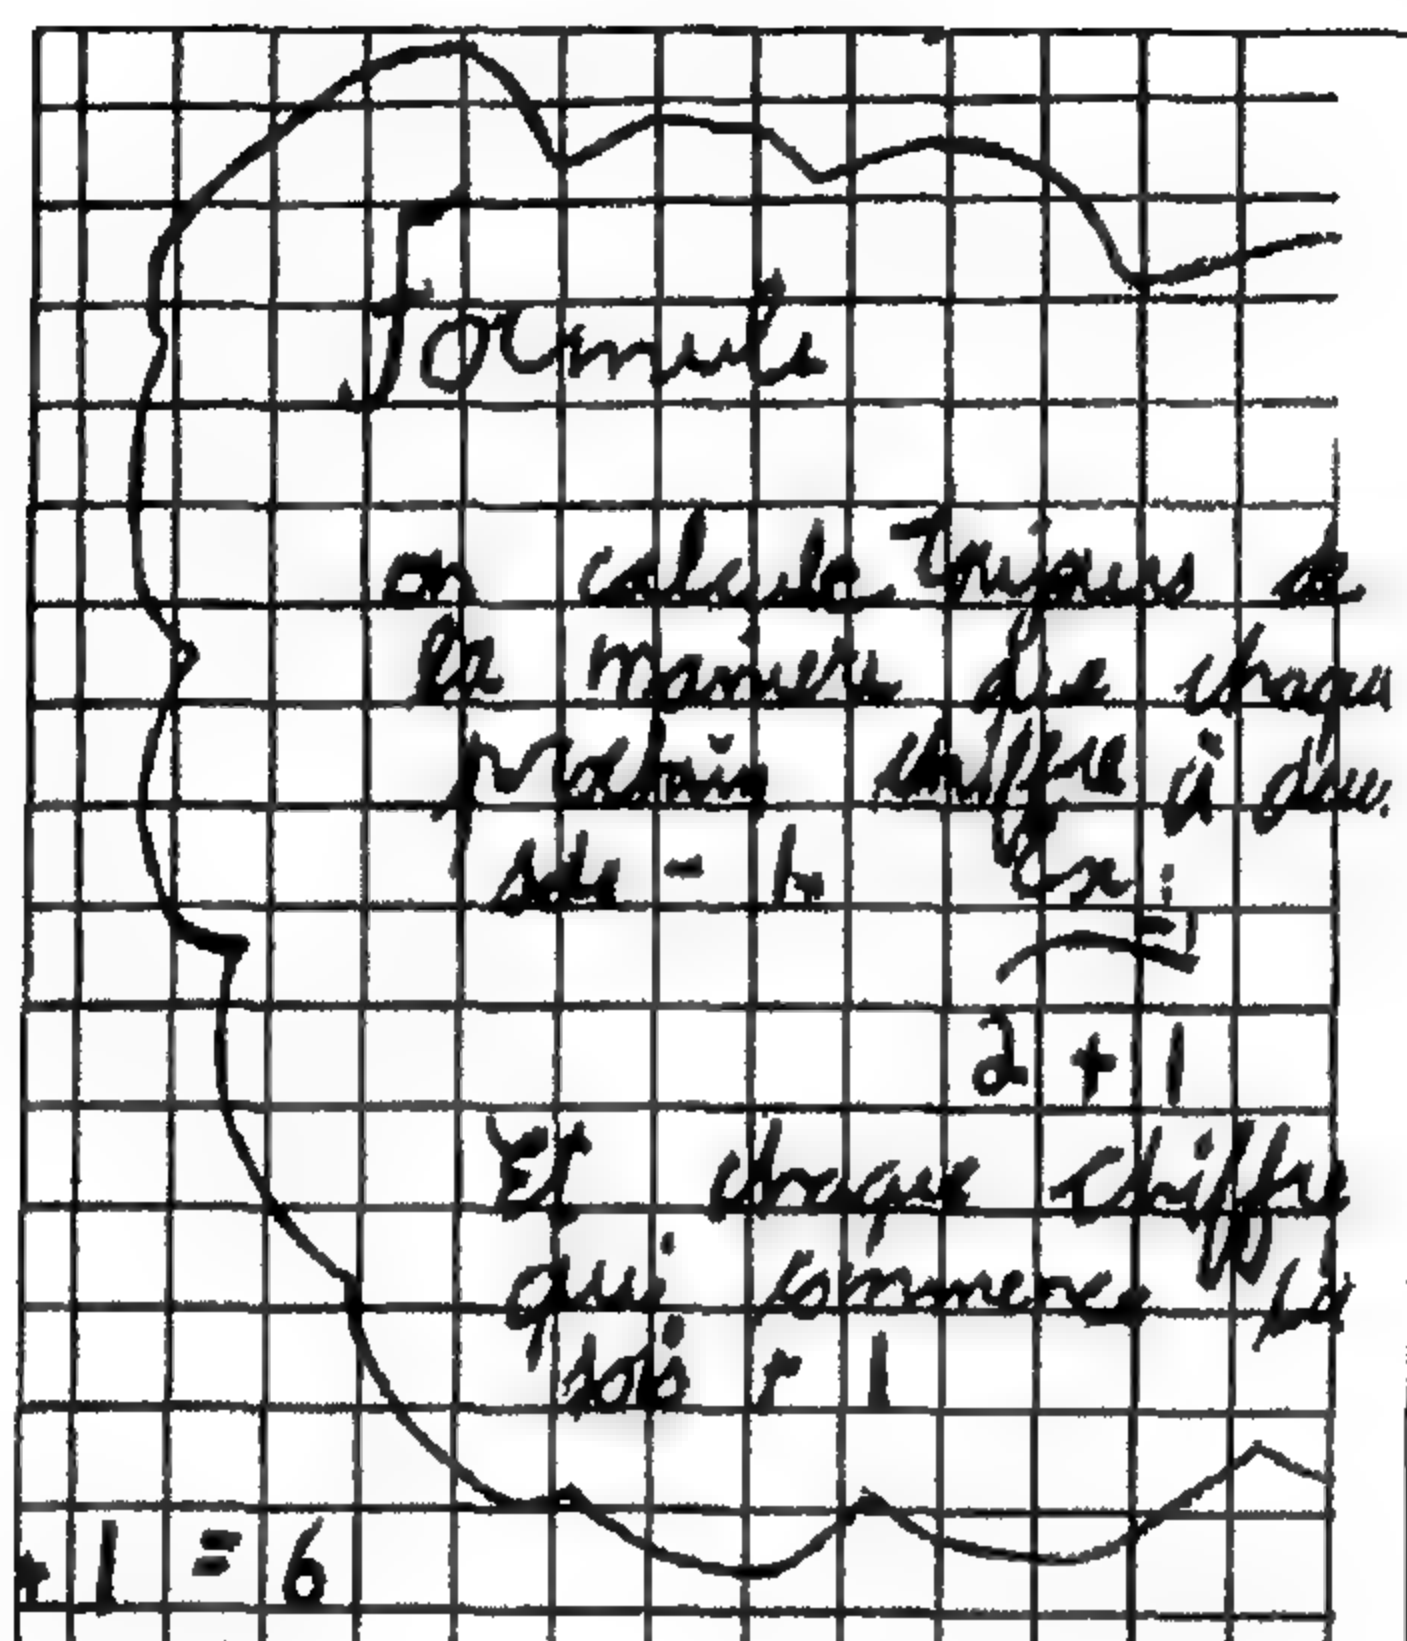 Formule
on calcule toujours de
la maniere que chaque
prochain chiffre à
- 1. Ex:
- 1
2 + 1
Et chaque chiffre
qui commence la
sois + 1
+ 1 = 6